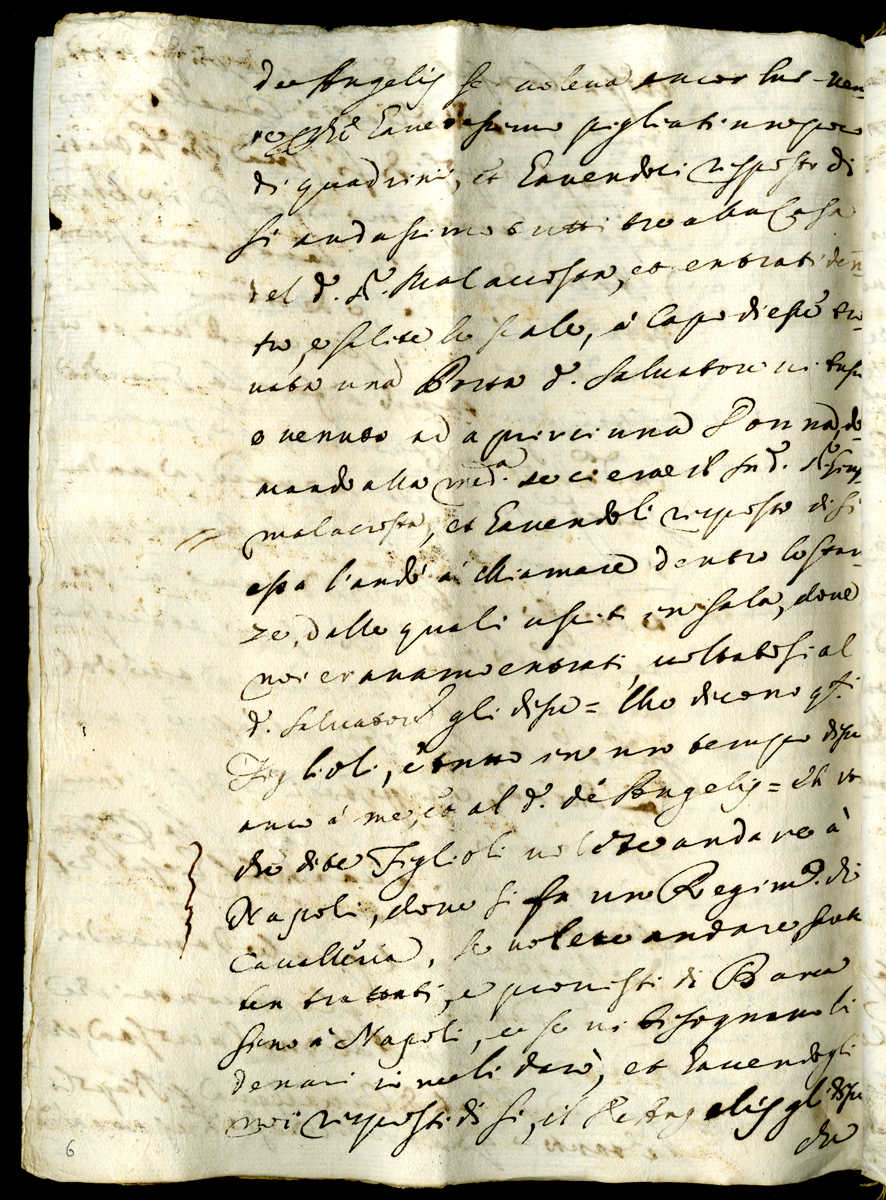 de Angelis se voleva ancor lui ven
re, che haveressimo pigliati un poco
di quadrini, et havendoci risposto di
si andassimo tutti tre alla Casa
del d.º Sr. Malaccosta, et entrati den
tro, e salite le scale, à capo di esse tro
vata una Porta d.º Salvatore vi bussò
e venuto ad aprirci una Donna, do
mandò alla med.a se ci era il sud.º Sr.
malacosta, et havendoli risposto di si
essa l'andò à chiamare dentro le stan
ze, dalle quali uscit in sala, dove
noi eravamo entrati, voltatosi al
d.º Salvatore gli disse = che dicono q.sti
Figlioli, e tutto in un tempo disse
anco à me, et al d.º de Angelis = 
che dite Figlioli volete andare à
Napoli, dove si fa un Regim.º di
Cavalleria, se volete andare sarete
ben trattati, e provisti di Barca
sino à Napoli, e se vi bisognano li
denari io ve li darò, et havendogli
noi risposti di si, il de Angelis gli disse
che
6